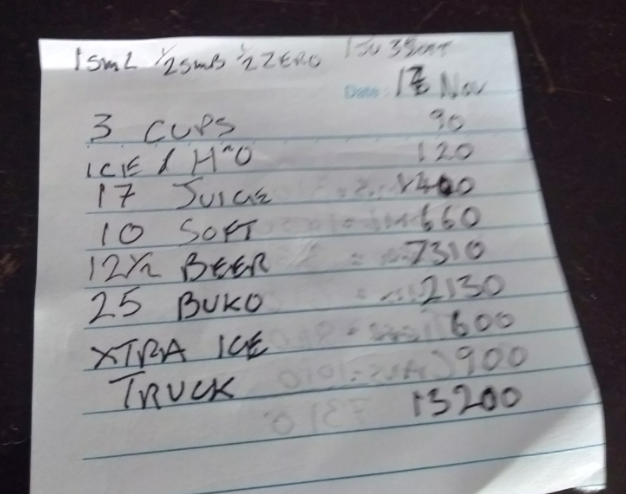 1 SML 1/2 SMB 1/2 ZERO 1 JU 3 SOFT
Date: Nov
3 CUPS 90
ICE / H²O 120
17 JUICE 1400
10 SOFT 660
12 1/2 BEER 7310
25 BUKO 2130
XTRA ICE 600
TRUCK 900
13200